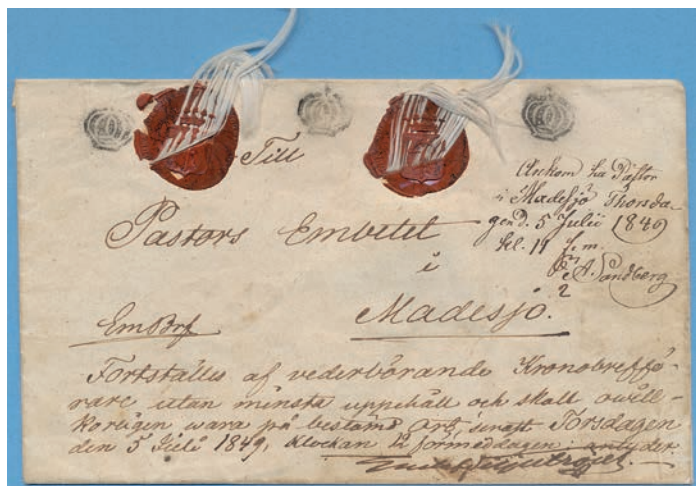 Till
Pastors Embetet
i
Madesjö.
Ankom ha Pastor
i Madesjö Thorsda-
gen d. 5 Julii 1849
kl. 11 f.m.
A. Sandberg
2
EmBrf
Fortställes af vederbörande Kronobreffö-
rare utan minsta uppehåll och skall owill-
korligen wara på bestämd ort, Torsdagen
den 5 Juli 1849, klockan 12 förmeddagen: